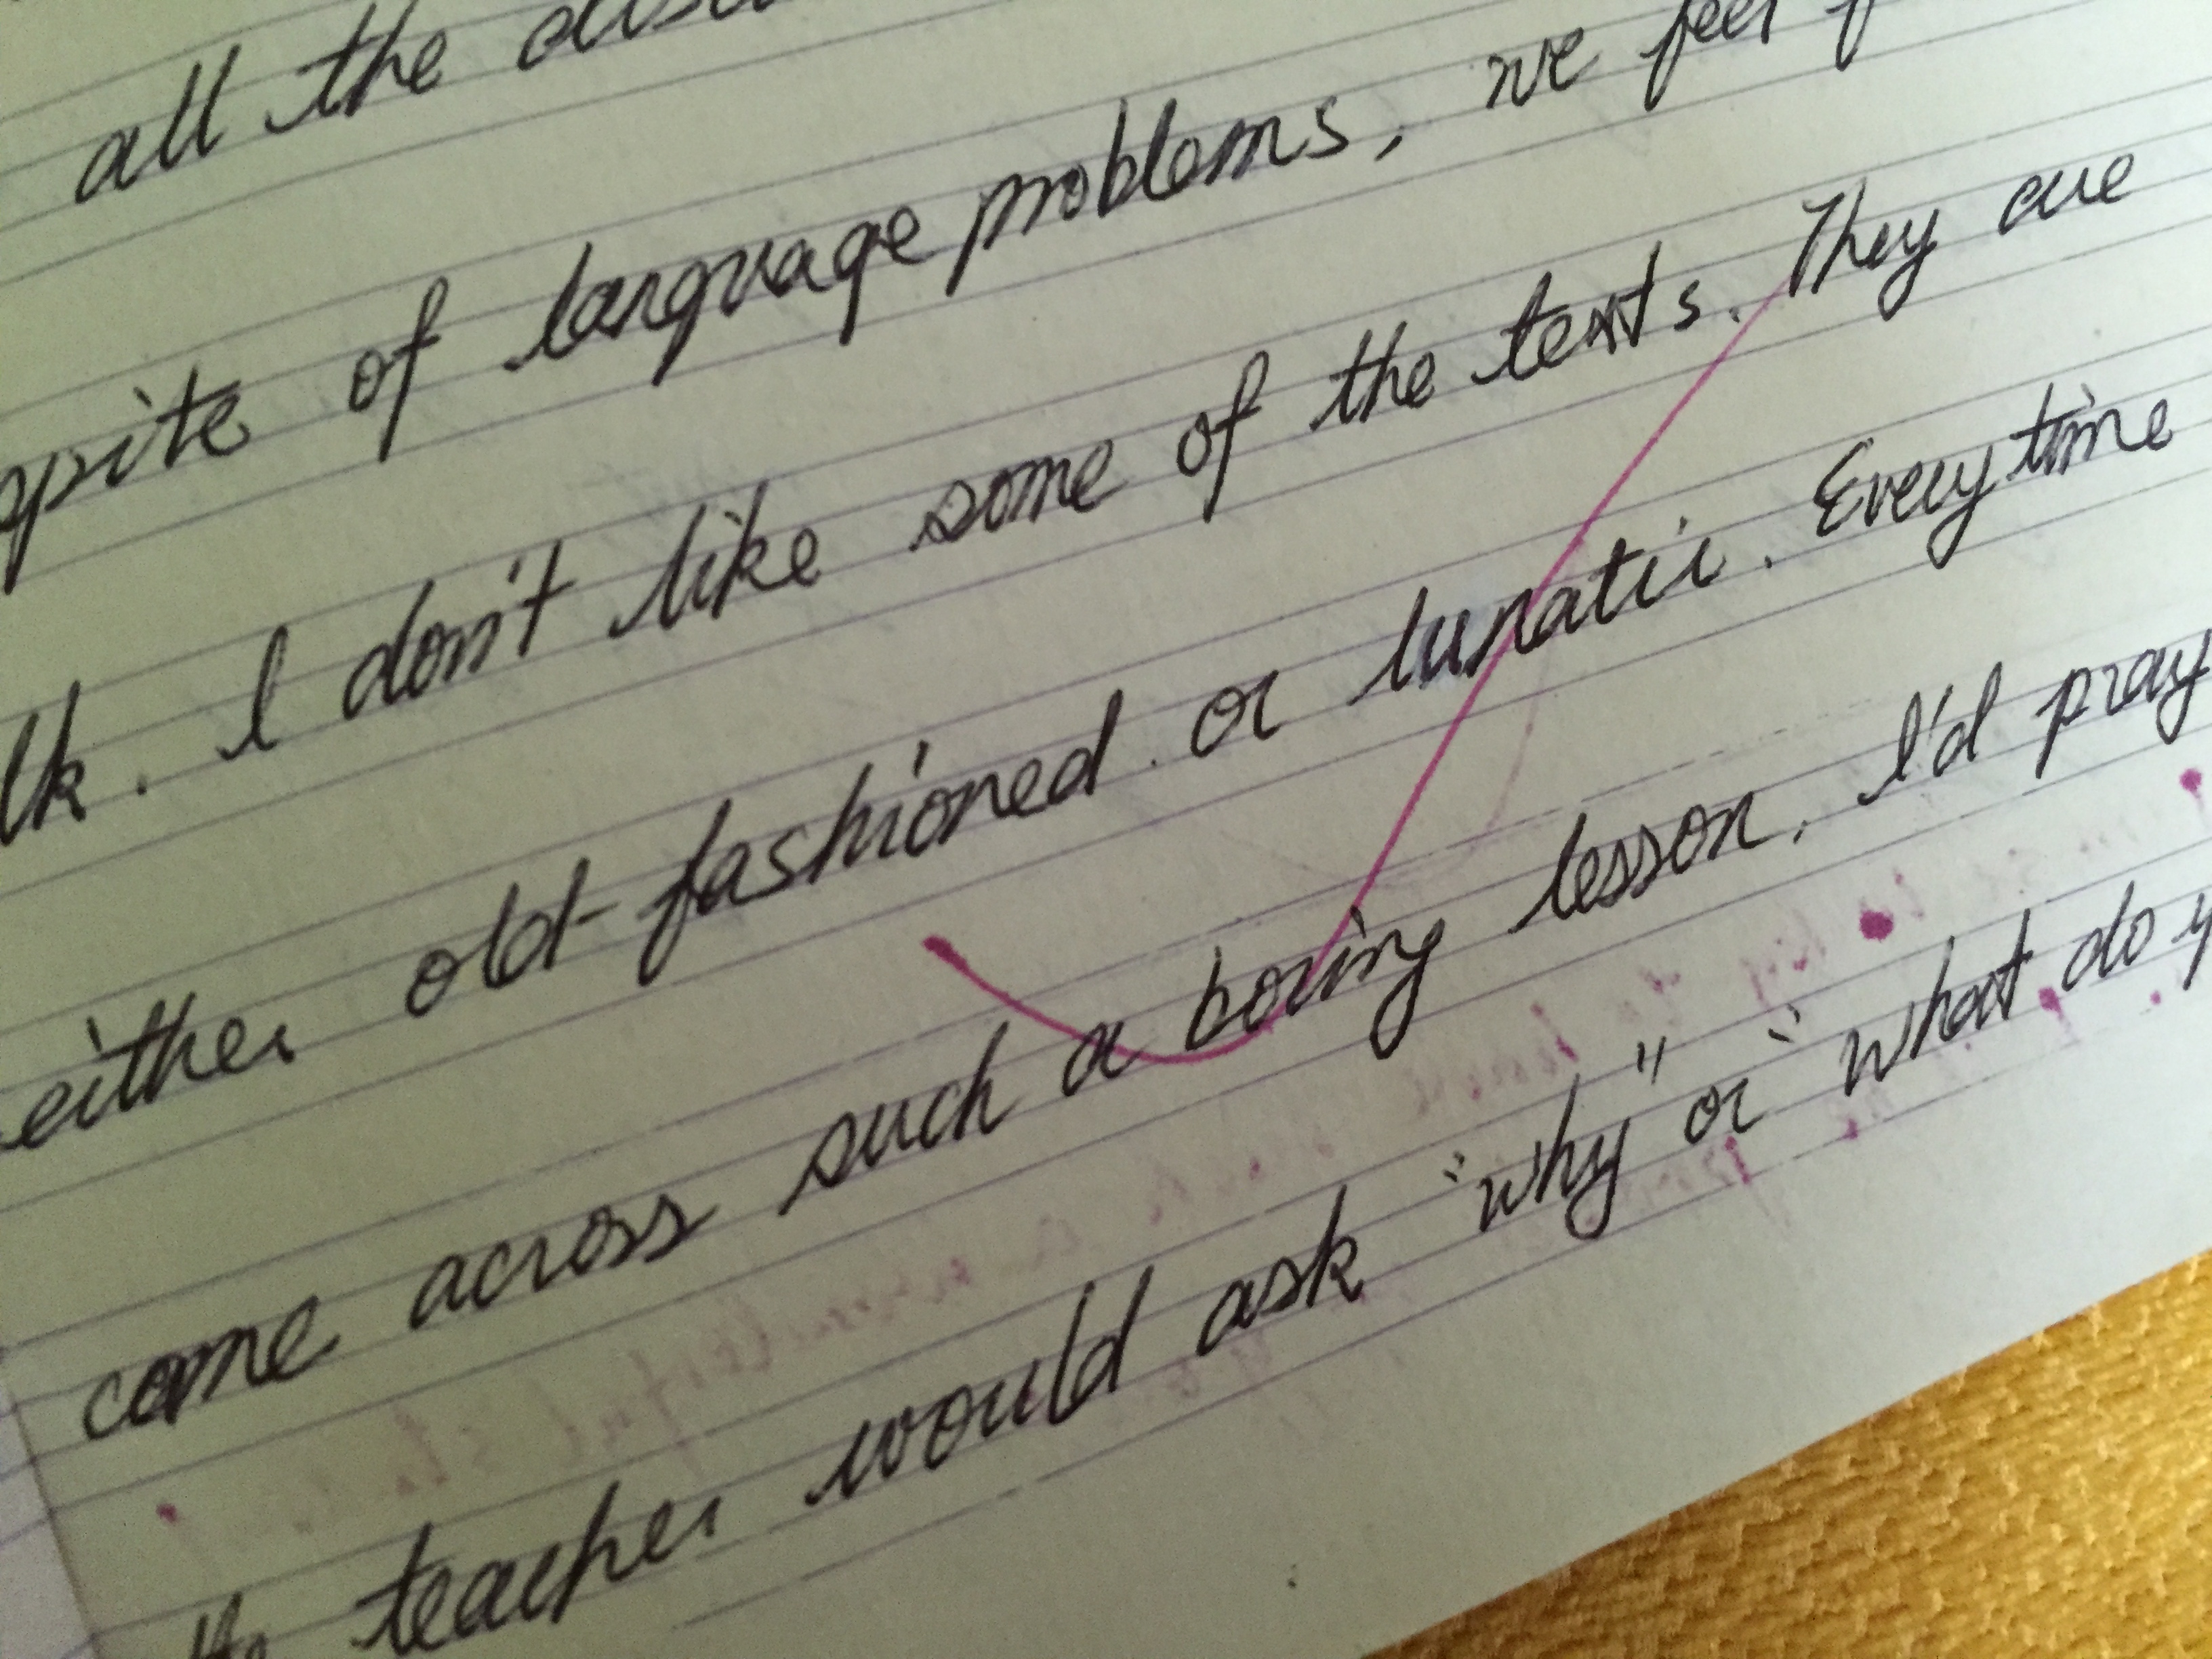 all the
of language problems, we feel
I don't like some of the texts. They are
either old-fashioned or lunatic. Everytime
come across such a boring lesson, I'd pray
the teacher would ask "why" or "what do